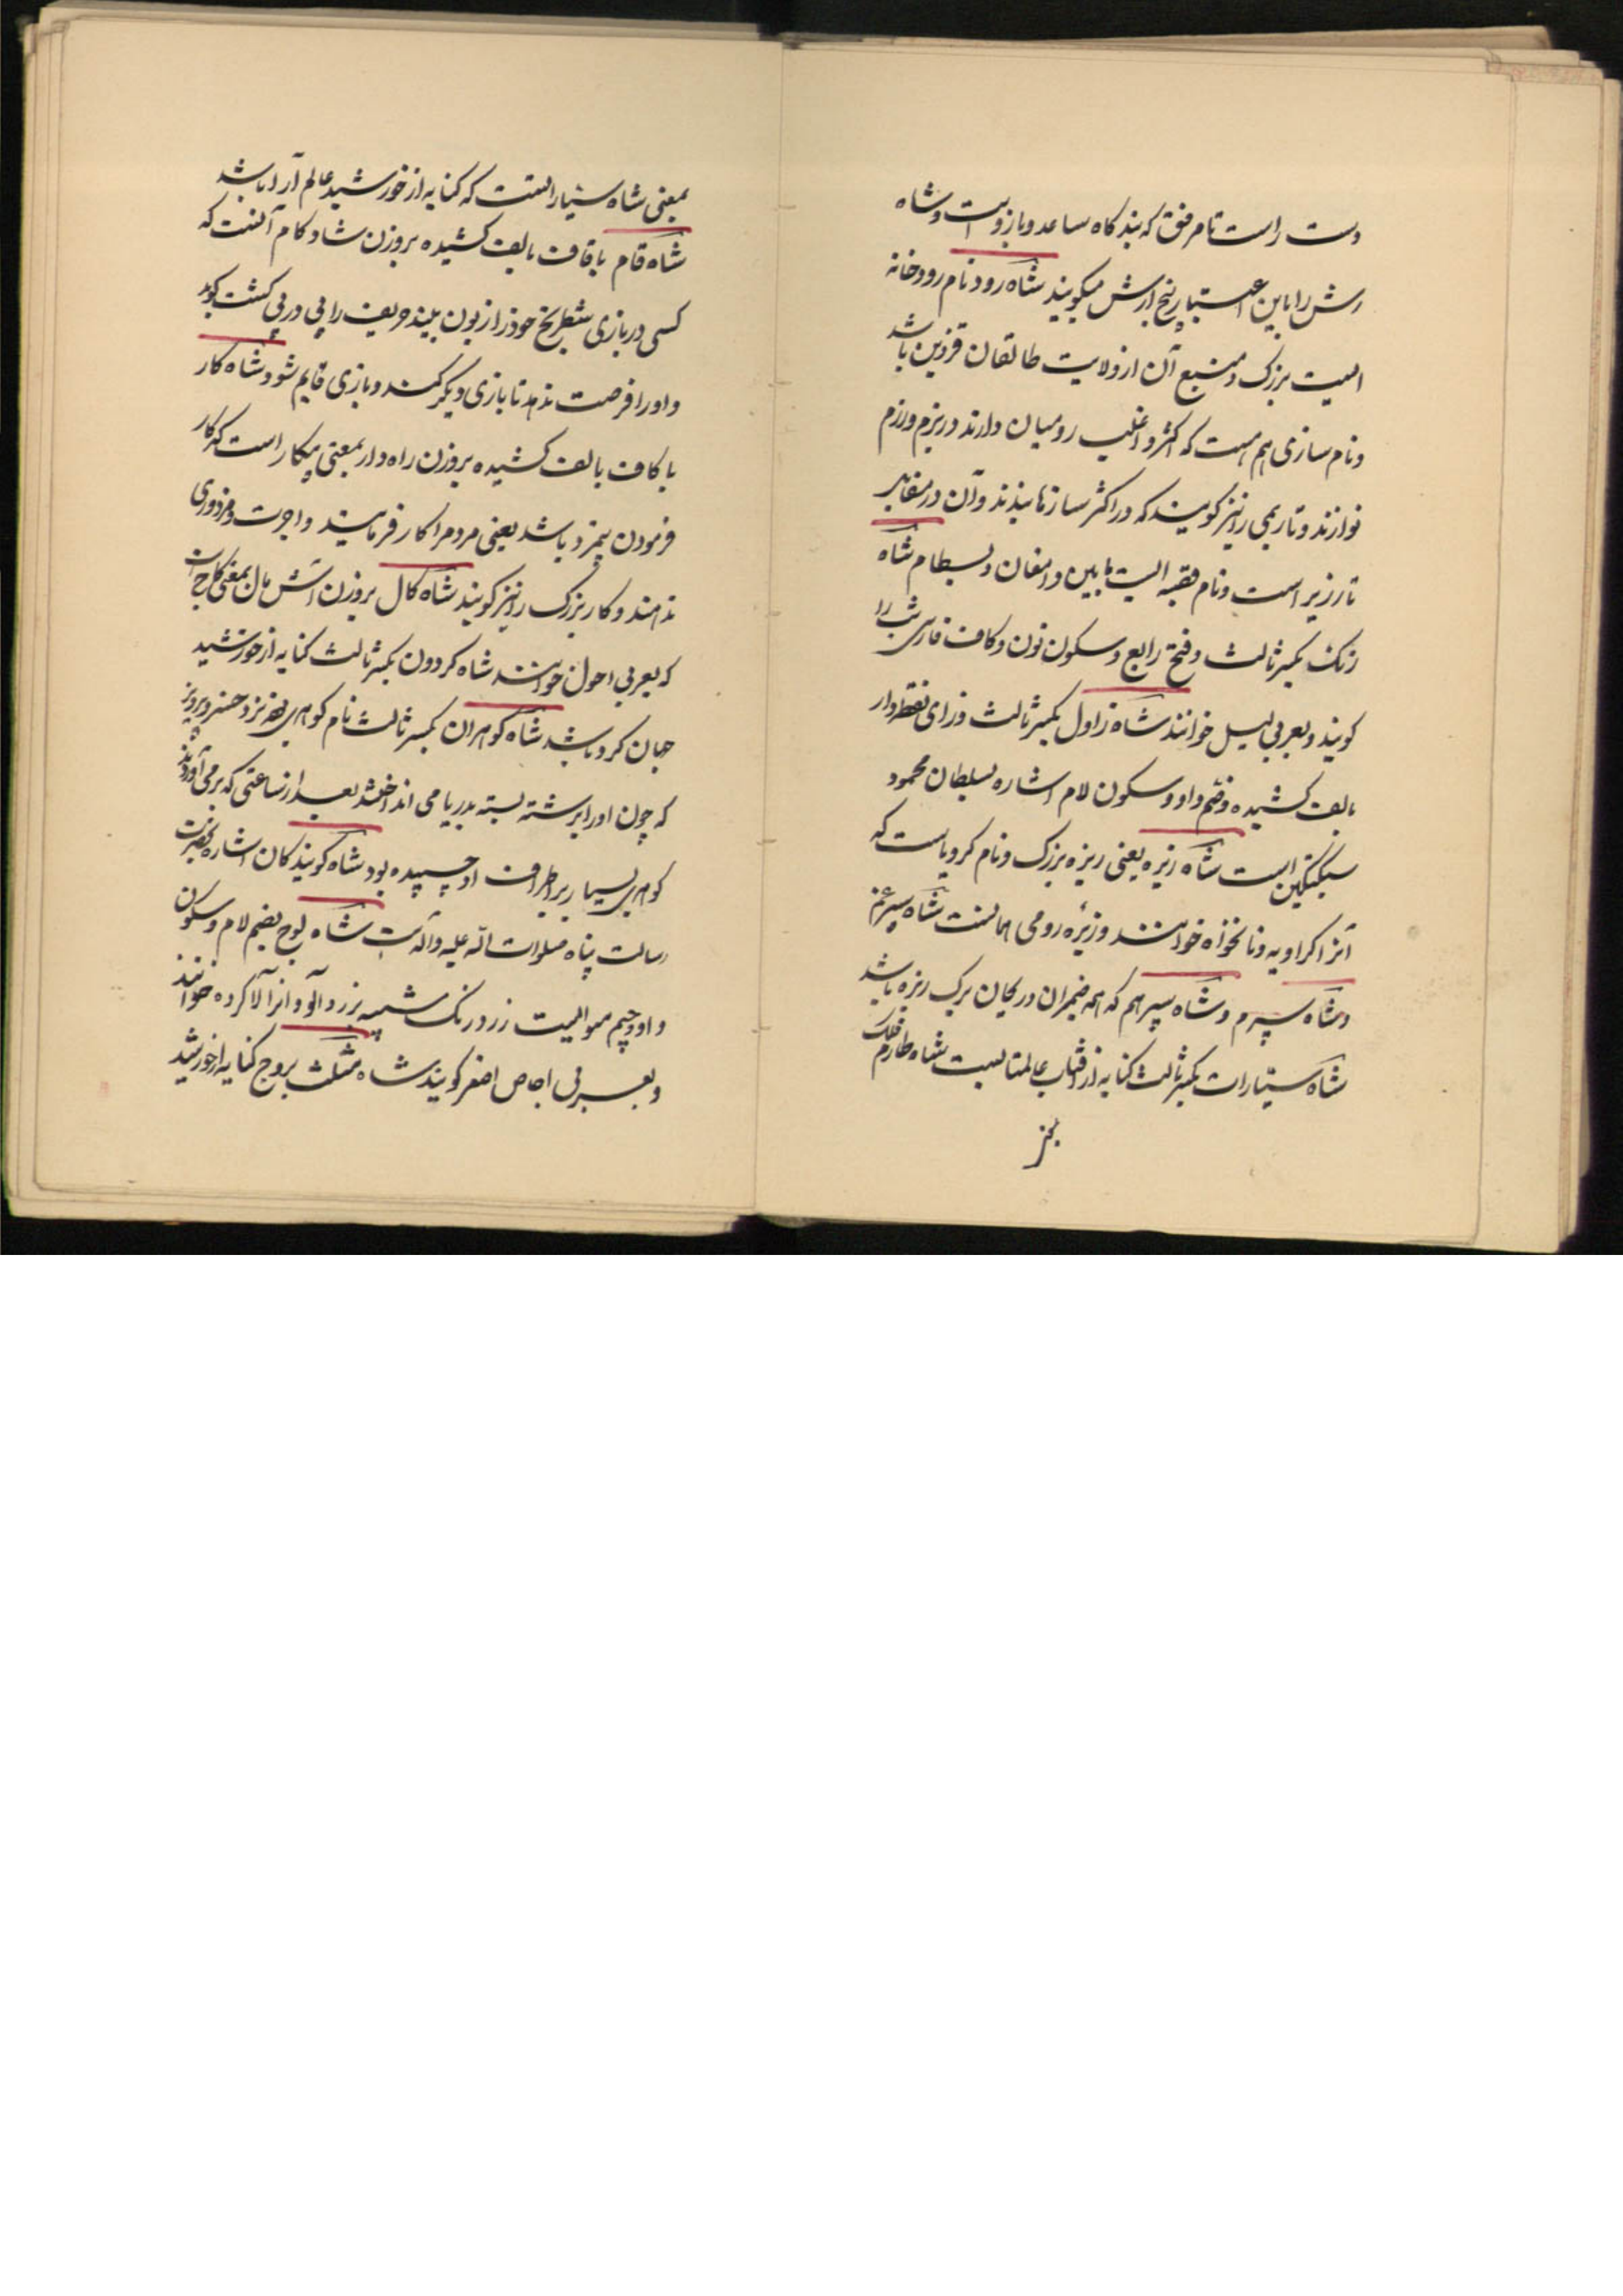 دست راست تا مرفق که بندگاه ساعد و بازو است و شاه
رش را باین اعتبار پنج ارش میگویند شاه رود نام رودخانه
ایست بزرک و منبع آن از ولایت طالقان قزوین باشد
و نام سازی هم هست که اکثر و اغلب رومیان دارند و در بزم و رزم
نوازند و تار بمی را نیز گویند که در اکثر سازها بندند و آن در مقابر
تار زیر است و نام قصبه ایست مابین دامغان و بسطام شاه
زنک بکسر ثالث و فتح رابع و سکون نون و کاف فارسی شب را
کویند و بعربی لیل خوانند شاه زاول بکسر ثالث و زرای نقطه دار
بالف کشیده و ضم واو و سکون لام اشاره بسلطان محمود
سبکتکین است شاه زیره یعنی زیره بزرک و نام کرویاست که
آنرا کراویه و نانخواه خوانند و زیره رومی همانست شاه سپرغم
و شاه سپرم و شاه سپرهم که همه ضیمران و ریحان برک ریزه باشد
شاه سیارات بکسر ثالث کنایه از آفتاب عالمتابست شاه طارم فلک
بمعنی شاه سیاراتست که کنایه از خورشید عالم آرا باشد
شاه قام با قاف بالف کشیده بروزن شاد کام آنست که
کسی در بازی شطرنج خود را زبون بیند و حریف را پی در پی کشت کوید
و او را فرصت ندهد تا بازی دیکر کند و بازی قایم شود شاه کار
با کاف بالف کشیده بروزن راه دار بمعنی بیکار است که کار
فرمودن بیمزد باشد یعنی مردم را کار فرمایند و اجرت و مزدوری
ندهند و کار بزرک را نیز کویند شاه کال بروزن آتش مال بمعنی کاج است
که بعربی احول خوانند شاه کردون بکسر ثالث کنایه از خورشید
جهان کرد باشد شاه کوهران بکسر ثالث نام کوهری بوده نزد خسرو پرویز
که چون او را برشته بسته بدریا می انداختند بعد از ساعتی که برمی آوردند
کوهری بسیار بر اطراف او چسبیده بود شاه کویندکان اشاره بحضرت
رسالت پناه صلوات الله علیه و آله است شاه لوج بضم لام و سکون
واو و جیم میوه ایست زرد رنک شبیه بزردآلو و آنرا آلا کرده خوانند
و بعربی اجاص اصفر کویند شاه مثلث بروج کنایه از خورشید